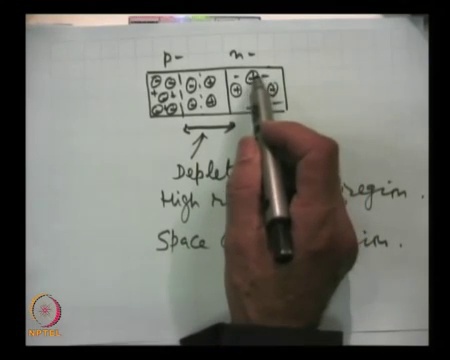 p- n-
Deplet
High r region.
Space ion.
NPTEL